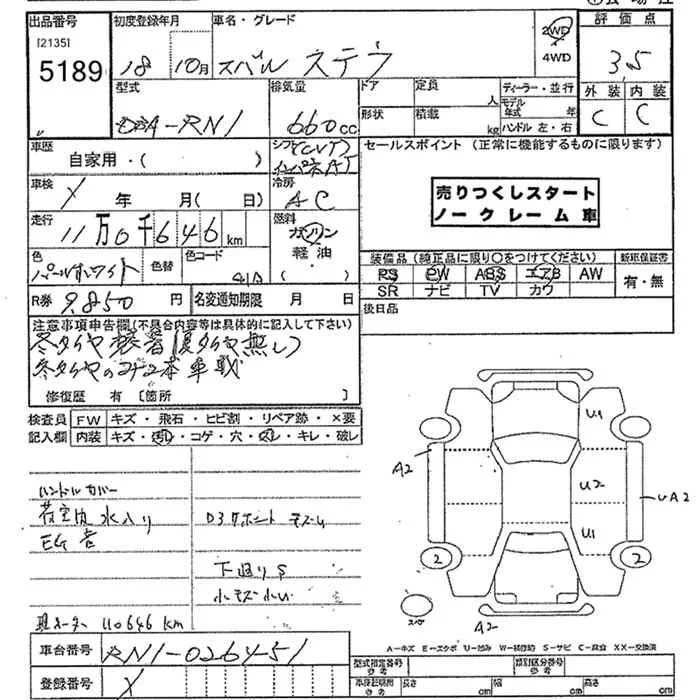 出品番号 初度登録年月 車名・グレード 2WD 評価点
[2135]
5189 18 10月 スバル ステラ 4WD 3.5
型式 排気量 ドア 定員 ディーラー・並行 外装 内装
DBA-RN1 660cc 人 モデル年式 年 C C
形状 積載 kg ハンドル 左・右
車歴 シフト セールスポイント(正常に機能するものに限ります)
自家用・( ) (CVT) インパネAT
車検 冷房
X 年 月( 日) AC
売りつくしスタート
ノークレーム車
走行 燃料
11万0千646km ガソリン
軽油・
( )
色 色替 色コード 装備品(純正品に限り○をつけてください) 新車保証書
パールホワイト 41A PS PW ABS エアB AW 有・無
SR ナビ TV カワ
R券 9,850円 名変通知期限 月 日 後日品
注意事項申告欄(不具合内容等は具体的に記入して下さい)
冬タイヤ装着(夏タイヤ無し)
冬タイヤの
本車載
修復歴 有 〔箇所 〕
検査員 FW キズ・飛石・ヒビ割・リペア跡・×要
記入欄 内装 キズ・汚れ・コゲ・穴・スレ・キレ・破レ
ハンドルカバー
荷室内水入り
EG音
下廻りS
小キズ小凹
現メーター 110646km
U1
A2
U2
UA2
U1
2
2
スペア
A2
A=キズ E=エクボ U=凹み W=補修跡 S=サビ C=腐食 XX=交換済
車台番号 RN1-026451
登録番号 X
型式指定番号 参考 類別区分番号 参考
車体証明用 参考 長さ cm 幅 cm 高さ cm